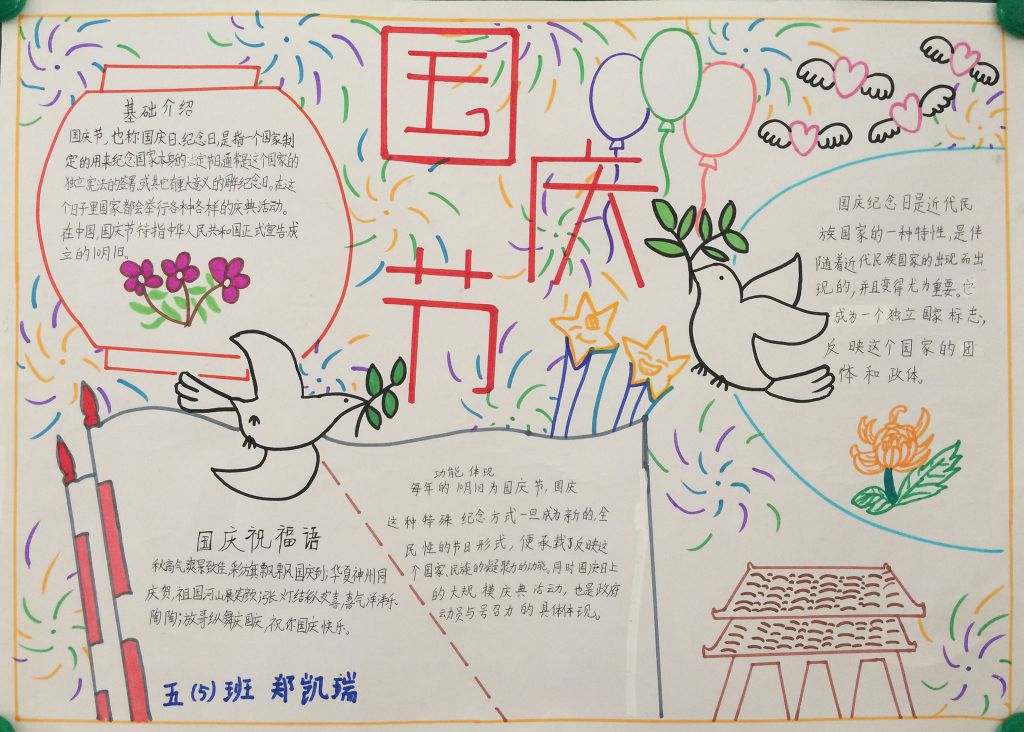 国庆节
基础介绍
国庆节,也称国庆日、纪念日,是指一个国家制
定的用来纪念国家本身的法定节日,通常是这个国家的
独立、宪法的签署,或其它有重大意义的周年纪念日。在这
个日子里国家都会举行各种各样的庆典活动。
在中国,国庆节特指中华人民共和国正式宣告成
立的10月1日。
国庆纪念日是近代民
族国家的一种特性,是伴
随着近代民族国家的出现而出
现的,并且变得尤为重要。它
成为一个独立国家标志,
反映这个国家的国
体和政体。
功能体现
每年的10月1日为国庆节,国庆
这种特殊纪念方式一旦成为新的,全
民性的节日形式,便承载了反映这
个国家、民族的凝聚力的功能。同时国庆日上
的大规模庆典活动,也是政府
动员与号召力的具体体现。
国庆祝福语
秋高气爽景致佳,彩旗飘飘国庆到;华夏神州同
庆贺,祖国河山展笑颜;张灯结彩人欢喜,喜气洋洋乐
陶陶;放哥纵舞庆国庆,祝你国庆快乐。
五(5)班 郑凯瑞